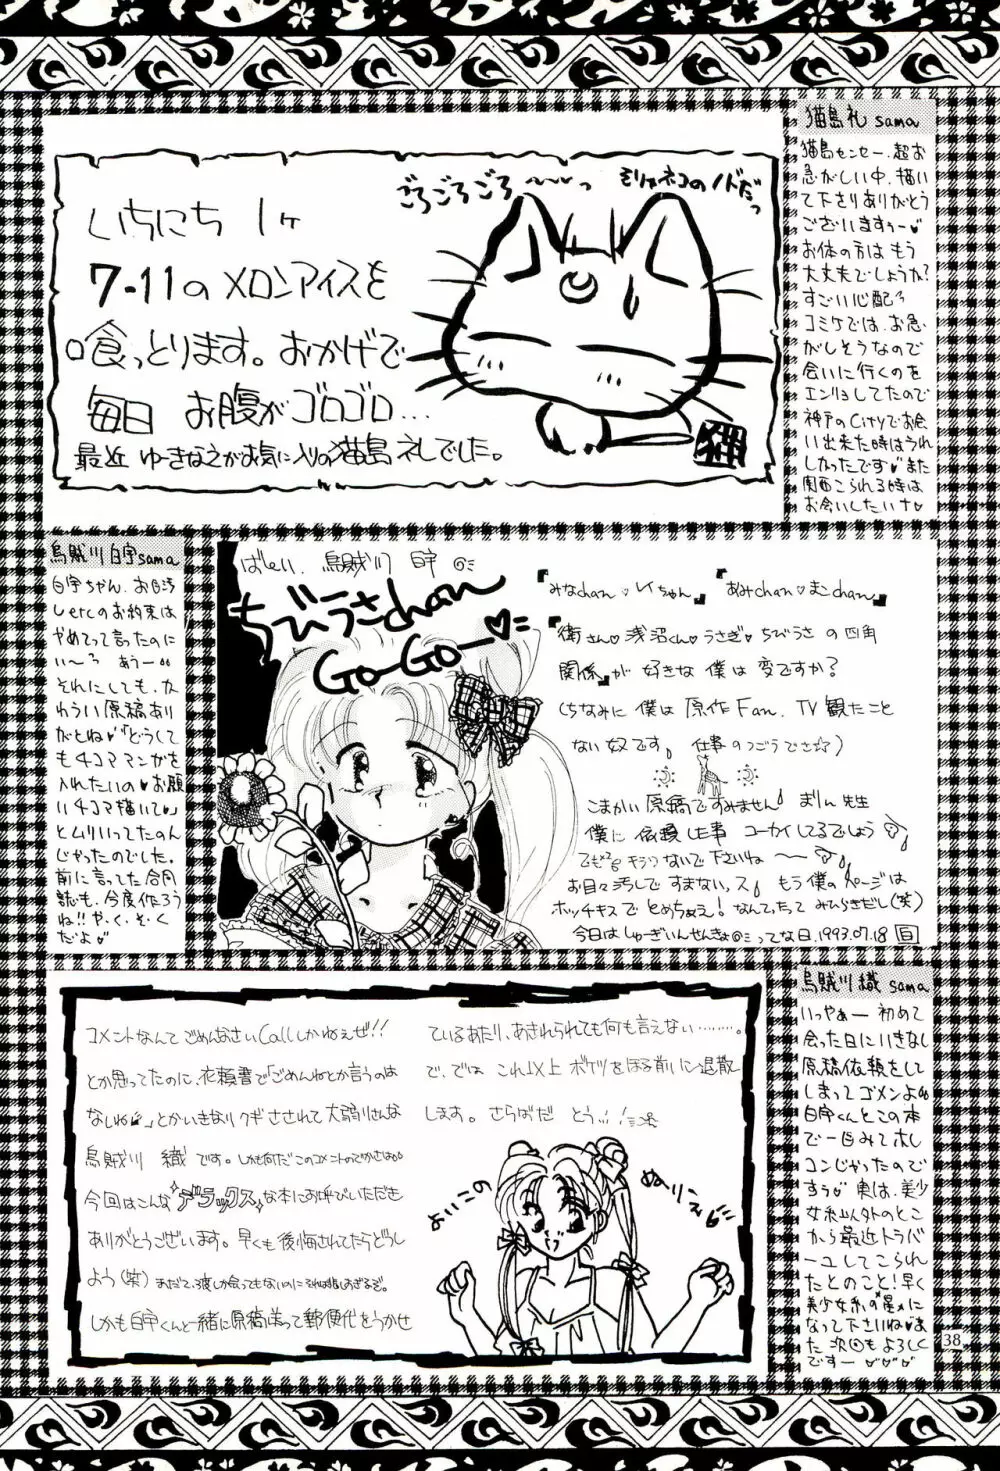 ごろごろごろ〜〜っ
いちにち 1ヶ
7-11のメロンアイスを
喰っとります。おかげで
毎日 お腹がゴロゴロ...
最近 ゆーきなえがお気に入りの猫島 礼でした。
猫島 礼 sama
猫島センセー、超お
急がしい中、描い
て下さりありがとう
ございますぅー♥
お体の方はもう
大丈夫でしょうか?
すごい心配
コミケでは、お急
がしそうなので
会いに行くのを
エンリョしてたので
神戸のCityでお会
い出来た時はうれ
しかったです♥また
関西こられる時は
お会いしたいナ♥
烏賊川 白宇 sama
白宇ちゃん、お目汚
しetcのお約束は
やめてって言ったのに
い〜? あうー
それにしても、か
わうい原稿あり
がとね♥「どうして
も4コママンガを
入れたいの♥お願
い4コマ描いて♥」
とムリいってたのん
じゃったのでした。
前に言ってた合同
誌も、今度作ろう
ね!!や・く・そ・く
だよ♥
烏賊川 白宇
ちびうさchan
GO-GO-♥
『みなchan♥レイちゃん』『あみchan♥まこchan』
『衛さん♥浅沼くん♥うさぎ♥ちびうさの四角
関係』が好きな僕は変ですか?
ちなみに僕は原作Fan、TV観たこと
ない奴です。仕事のつごうでさ☆)
こまかい原稿ですみません。まりん先生
僕に依頼した事コーカイしてるでしょう
でもキラわないで下さいね〜
お目々汚しですまないっス。もう僕のページは
ホッチキスでとめちゃえ!なんてったってみひらきだし(笑)
今日はしゅーぎいんせんきょの日ってな日、1993.07.18
烏賊川 織 sama
いっやぁー初めて
会った日にいきなし
原稿依頼をして
しまってゴメンよぉ
白宇くんとこの本
で一目みてホレ
コンじゃったので
すぅ♥実は、美少
女系以外のとこ
から最近トラバ
ーユしてこられ
たとのこと!早く
美少女系の星に
なって下さいね♥ま
た次回もよろしく
ですー♥♥♥
コメントなんてごめんなさいCallしかねぇぜ!!
とか思ってたのに、依頼書で「ごめんねとか言うのは
なしね♥」とかいきなりクギさされて大弱りさんな
烏賊川 織です。しかも何だこのコメントのでかさは
今回はこんなデラックスな本にお呼びいただき
ありがとうございます。早くも後悔されてたらどうし
よう(笑)まだたった1度しか会ってもないのにそれは悲しすぎるぞ。
しかも白宇くんと一緒に原稿送って郵便代をうかせ
ているあたり、あきれられても何も言えない………。
で、では これ以上ボケツをほる前に退散
します。さらばだ とうっ!!
よいこの
ぬりえ
38